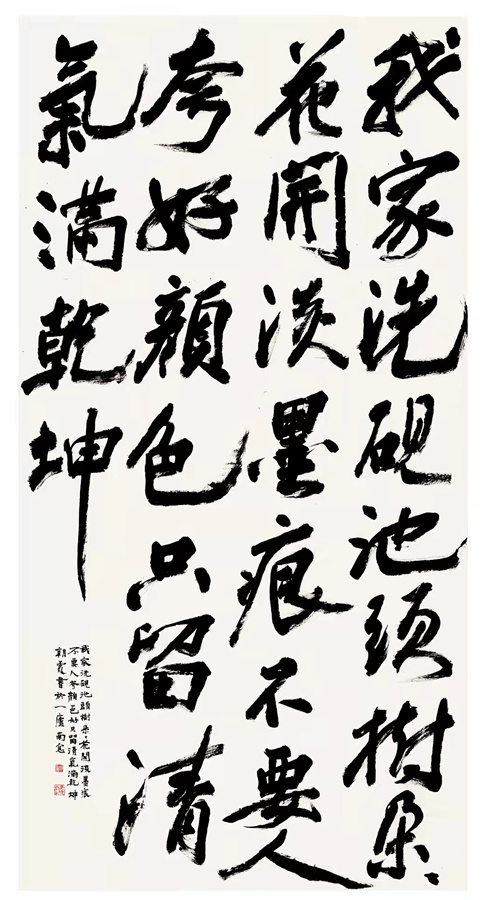 我家洗硯池頭樹朵、
花開淡墨痕不要人
夸好顏色只留清
氣滿乾坤
我家洗硯池頭樹朵、花開淡墨痕
不要人夸顏色好只留清氣滿乾坤
朝霞書於一廬南窗